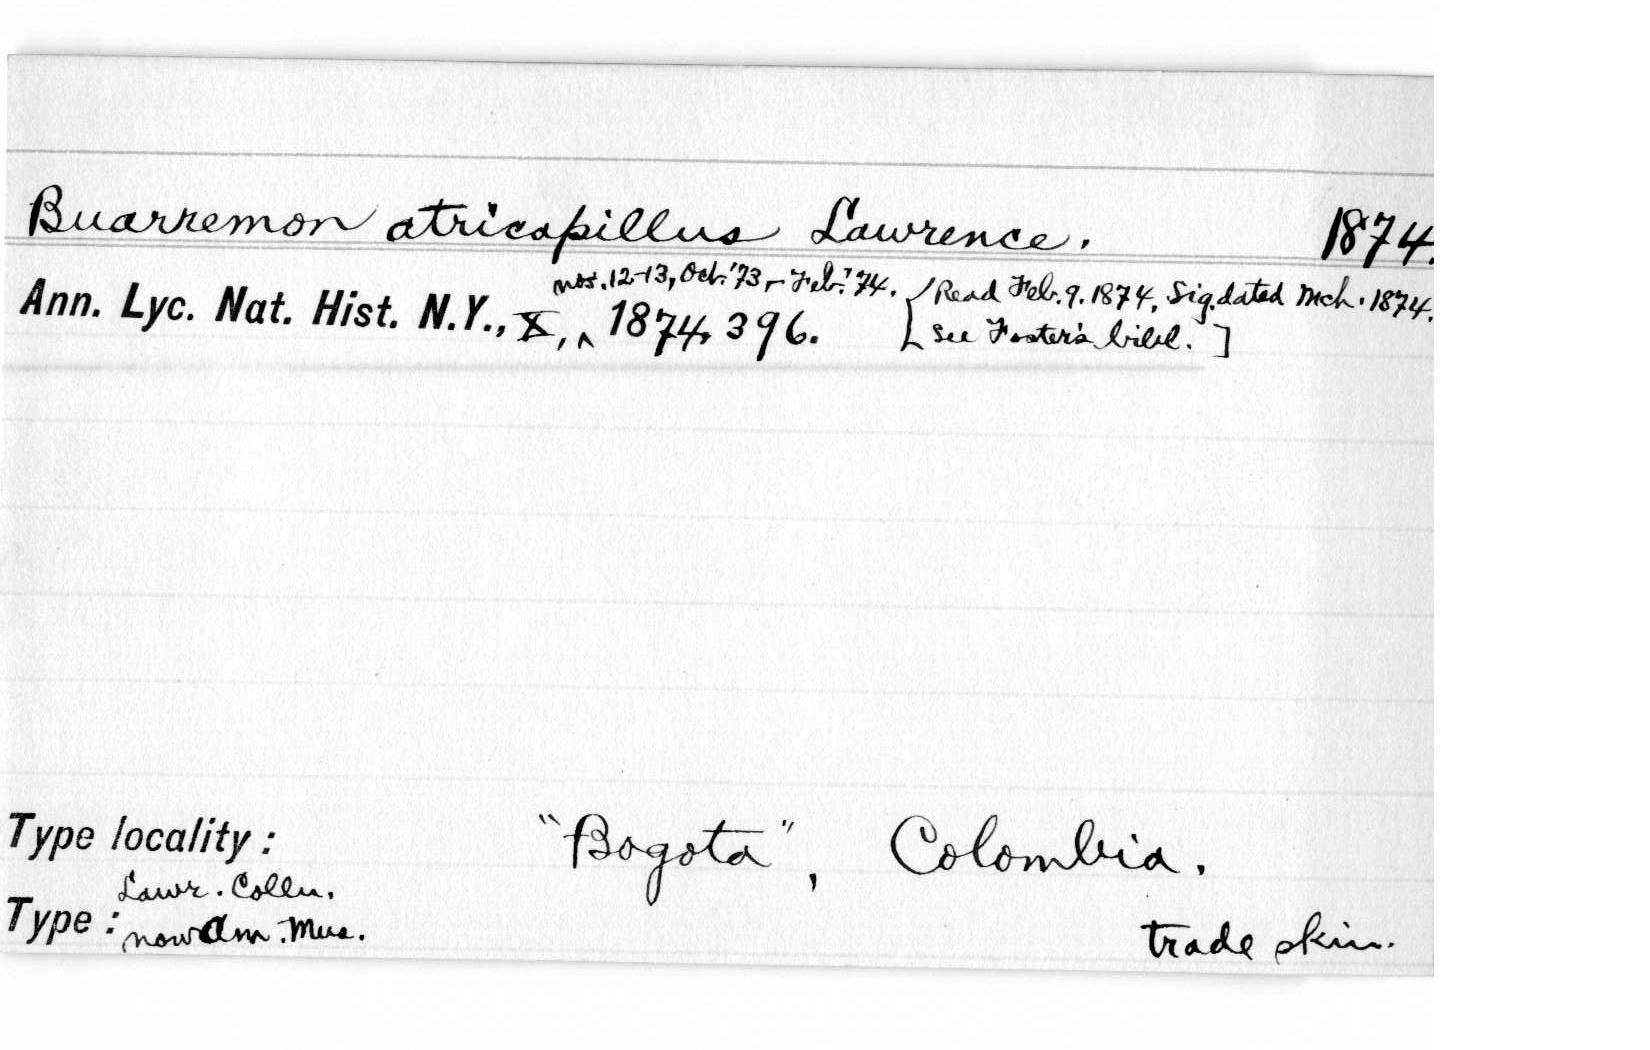 Buarremon atricapillus Lawrence. 1874.
nos. 12-13, Oct. '73 - Feb. '74. [Read Feb. 9. 1874, Sig. dated Mch. 1874.
Ann. Lyc. Nat. Hist. N.Y., X, ^ 1874, 396. See Foster's bibl.]
Type locality: "Bogota", Colombia.
Lawr. Colln.
Type: now Am. Mus. trade skin.